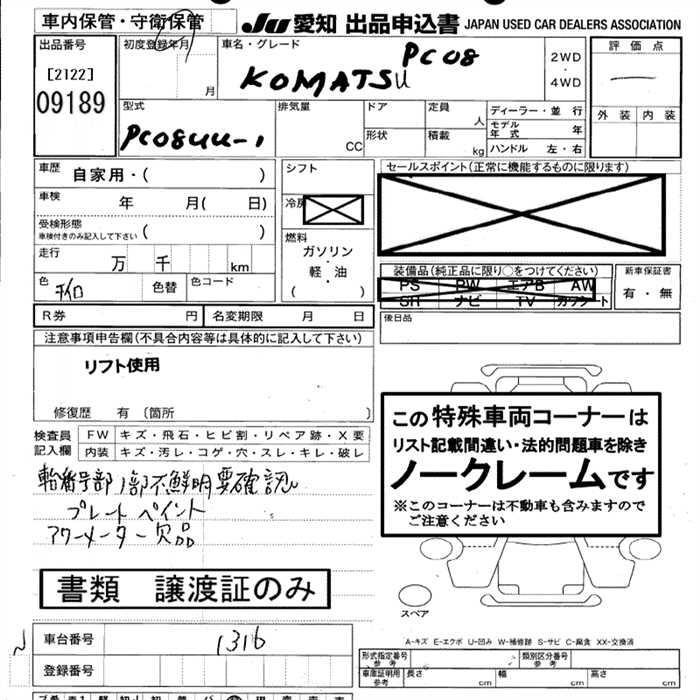 車内保管・守衛保管
JU 愛知 出品申込書 JAPAN USED CAR DEALERS ASSOCIATION
出品番号
[2122]
09189
初度登録年月
月
車名・グレード
KOMATSU PC08
2WD
・
4WD
評価点
外装 内装
型式
PC08UU-1
排気量
CC
ドア
形状
定員
人
積載
kg
ディーラー・並行
モデル年式 年
ハンドル 左・右
車歴
自家用・( )
車検 年 月( 日)
受検形態
車検付きのみ記入して下さい ( )
走行
万 千 km
色
色替
色コード
シフト
冷房
燃料
ガソリン
・
軽・油
( )
セールスポイント(正常に機能するものに限ります)
装備品(純正品に限り○をつけてください)
PS PW エアB AW
SR ナビ TV カワシート
新車保証書
有・無
R券 円 名変期限 月 日
後日品
注意事項申告欄(不具合内容等は具体的に記入して下さい)
リフト使用
修復歴 有〔箇所 〕
検査員記入欄
FW キズ・飛石・ヒビ割・リペア跡・X要
内装 キズ・汚レ・コゲ・穴・スレ・キレ・破レ
輪番号部1部不鮮明要確認
プレートペイント
アワーメーター欠品
この特殊車両コーナーは
リスト記載間違い・法的問題車を除き
ノークレームです
※このコーナーは不動車も含みますので
ご注意ください
書類 譲渡証のみ
スペア
A-キズ E-エクボ U-凹み W-補修跡 S-サビ C-腐食 XX-交換済
車台番号 1316
登録番号
形式指定番号 参考
類別区分番号 参考
車庫証明用 参考
長さ cm 幅 cm 高さ cm